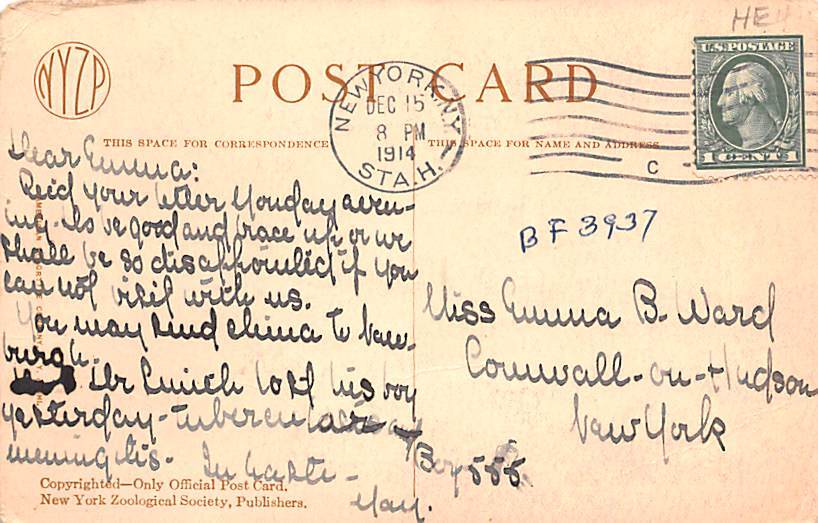 HE
NYZP
POST CARD
U.S. POSTAGE
1 CENT 1
NEW YORK, N.Y.
DEC 15
8 PM
1914
STA. H.
C
THIS SPACE FOR CORRESPONDENCE
THIS SPACE FOR NAME AND ADDRESS
BF 3937
Dear Emma:
Rec'd your letter Monday even-
ing. Do be good and brace up or we
shall be so disappointed if you
can not visit with us.
You may send china to New-
burgh.
Mr Smith lost his boy
yesterday - tubercular
meningitis. In haste -
May.
Miss Emma B. Ward
Cornwall-on-Hudson
New York
Box 555.
Copyrighted—Only Official Post Card.
New York Zoological Society, Publishers.